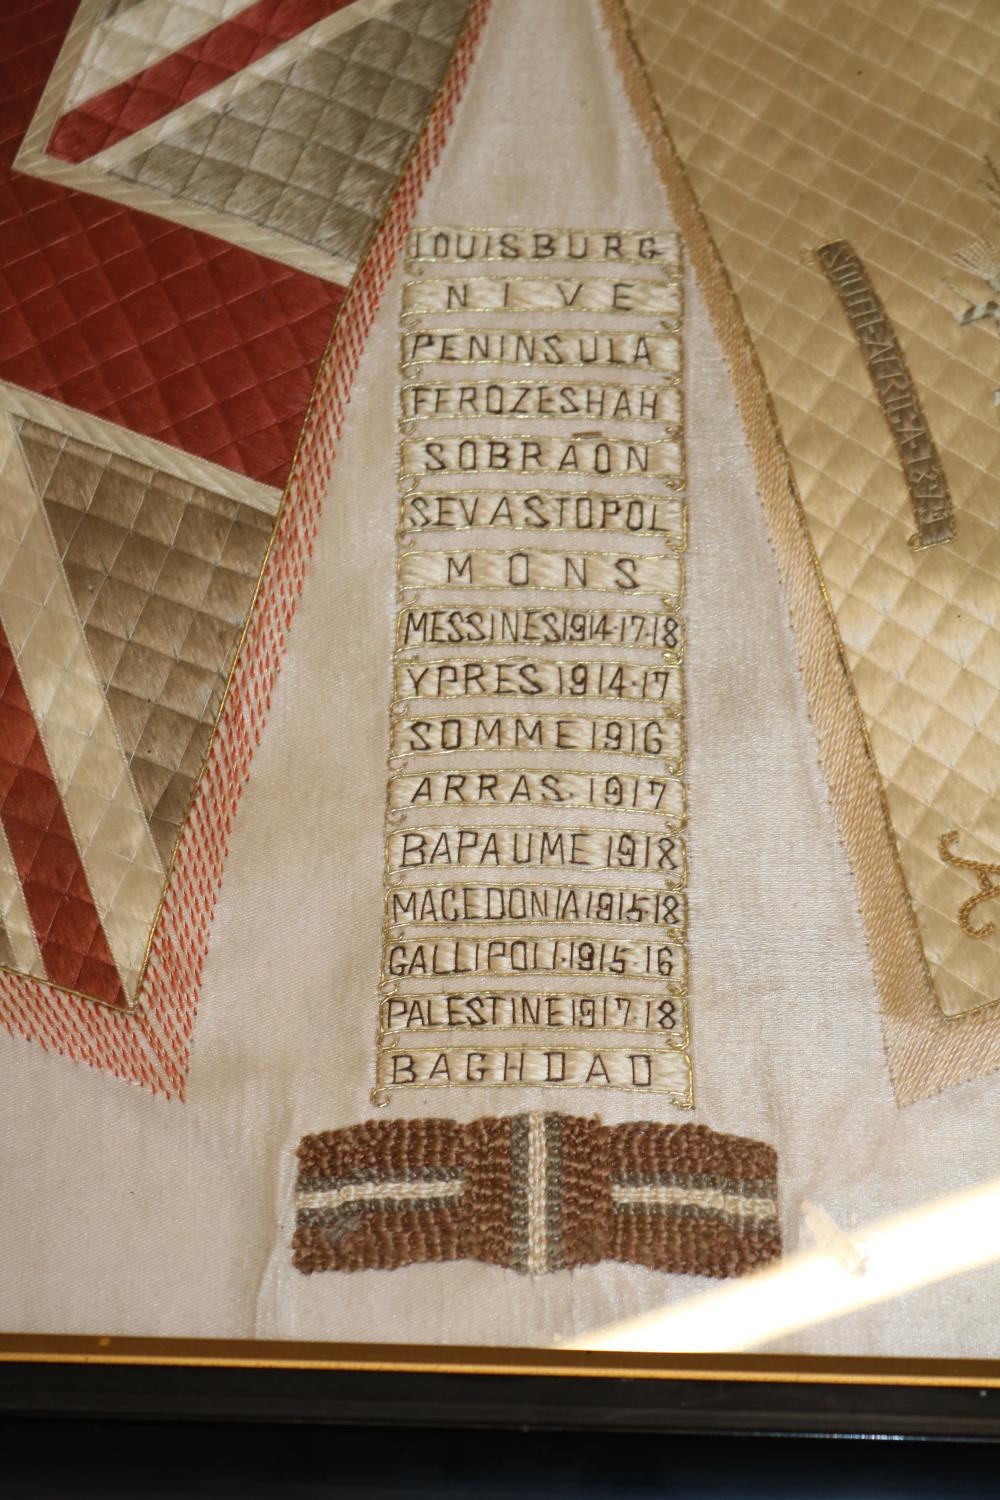 LOUISBURG
NIVE
PENINSULA
FEROZESHAH
SOBRAON
SEVASTOPOL
MONS
MESSINES1914·17·18
YPRES 1914·17
SOMME 1916
ARRAS· 1917
BAPAUME 1918
MACEDONIA1915·18
GALLIPOLI·1915·16
PALESTINE1917·18
BAGHDAD
SOUTH-AFRICA-1879
A